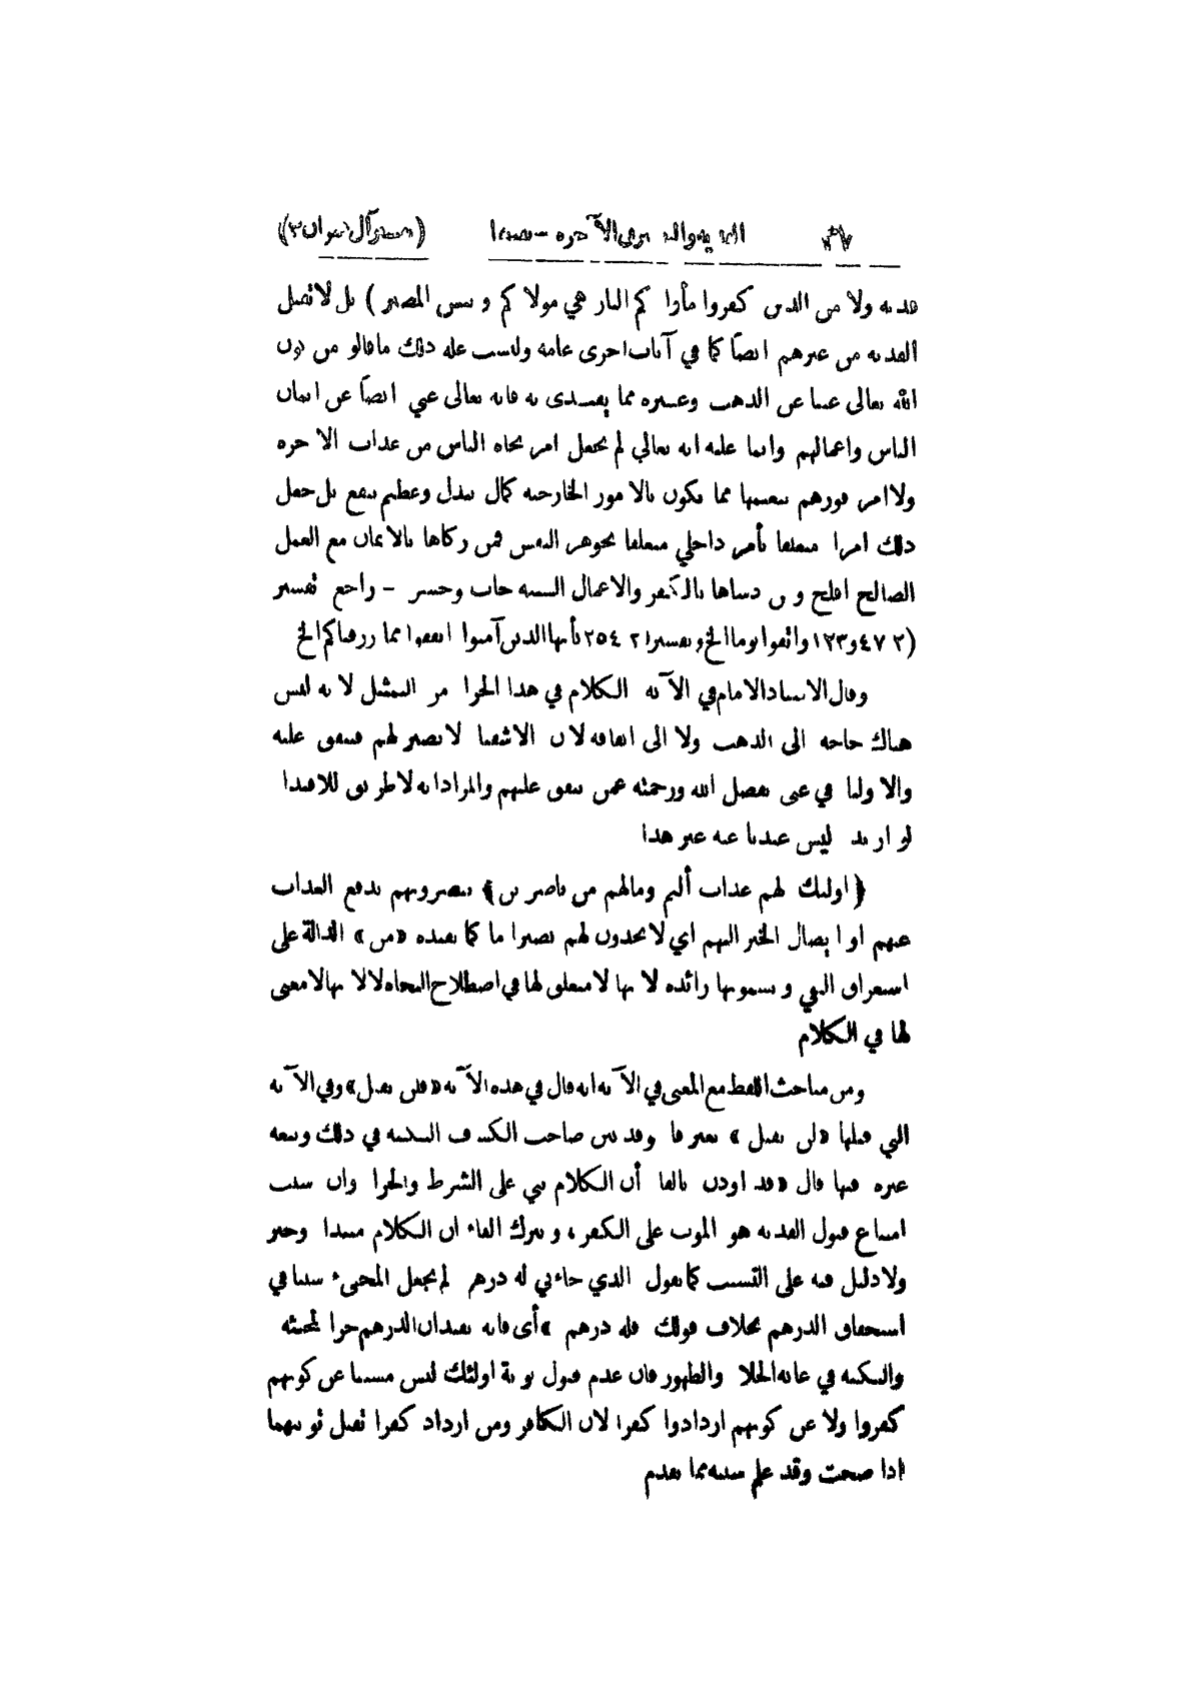 الآخرة (تفسير آل عمران ٣)
فدية ولا من الذين كفروا مأواكم النار هي مولاكم وبئس المصير ) بل لا تقبل
الفدية من غيرهم ايضاً كما في آيات اخرى عامة وليست علة ذلك ما قالوه من كون
الله تعالى غنيا عن الذهب وغيره مما يفتدى به فانه تعالى غني ايضاً عن ايمان
الناس واعمالهم وانما علته انه تعالى لم يجعل امر نجاة الناس من عذاب الآخرة
ولا امر فوزهم بنعيمها مما يكون بالامور الخارجية كمال يبذل وعظيم يشفع بل جعل
ذلك امرا متعلقا بأمر داخلي متعلقا بجوهر النفس فمن زكاها بالايمان مع العمل
الصالح افلح ومن دساها بالكفر والاعمال السيئة خاب وخسر – راجع تفسير
(٢ ٤٧ و١٢٣ واتقوا يوما الخ وتفسير ٢ ٢٥٤ يأيها الذين آمنوا انفقوا مما رزقناكم الخ
وقال الاستاذ الامام في الآية الكلام في هذا الجزاء من التمثيل لانه ليس
هناك حاجة الى الذهب ولا الى انفاقه لان الاشقياء لا نصير لهم فينفق عليه
والاولياء في غنى بفضل الله ورحمته عمن ينفق عليهم والمراد انه لا طريق للافتداء
لو اريد ليس عندنا عنه غير هذا
﴿ اولئك لهم عذاب أليم وما لهم من ناصرين ﴾ ينصرونهم بدفع العذاب
عنهم او ايصال الخير اليهم اي لا يجدون لهم نصيرا ما كما يفيده «من» الدالة على
استغراق النفي ويسمونها زائدة لانها لا متعلق لها في اصطلاح النحاة لا لانها لا معنى
لها في الكلام
ومن مباحث اللفظ مع المعنى في الآية انه قال في هذه الآية «فلن يقبل» وفي الآية
التي قبلها «لن تقبل » بغير فاء وقد بين صاحب الكشاف النكتة في ذلك وتبعه
غيره فيها قال «قد اوذن بالفاء أن الكلام بني على الشرط والجزاء وان سبب
امتناع قبول الفدية هو الموت على الكفر ، وبترك الفاء ان الكلام مبتدأ وخبر
ولا دليل فيه على التسبب كما تقول الذي جاءني له درهم لم تجعل المجيء سببا في
استحقاق الدرهم بخلاف قولك فله درهم »أى فانه يفيد ان الدرهم جزاء لمجيئه
والنكتة في غاية الجلاء والظهور فان عدم قبول توبة اولئك ليس مسببا عن كونهم
كفروا ولا عن كونهم ازدادوا كفرا لان الكافر ومن ازداد كفرا تقبل توبتهما
اذا صحت وقد علم سببه مما تقدم